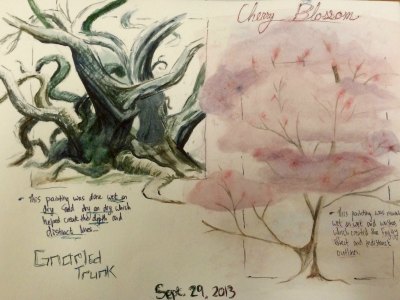 Cherry Blossom
• This painting was done wet on
dry and dry on dry which
helped create the depth and
distinct lines...
Gnarled
Trunk
• This painting was
wet on wet and washes,
which created the foggy
effect and indistinct
outlines.
Sept. 29, 2013